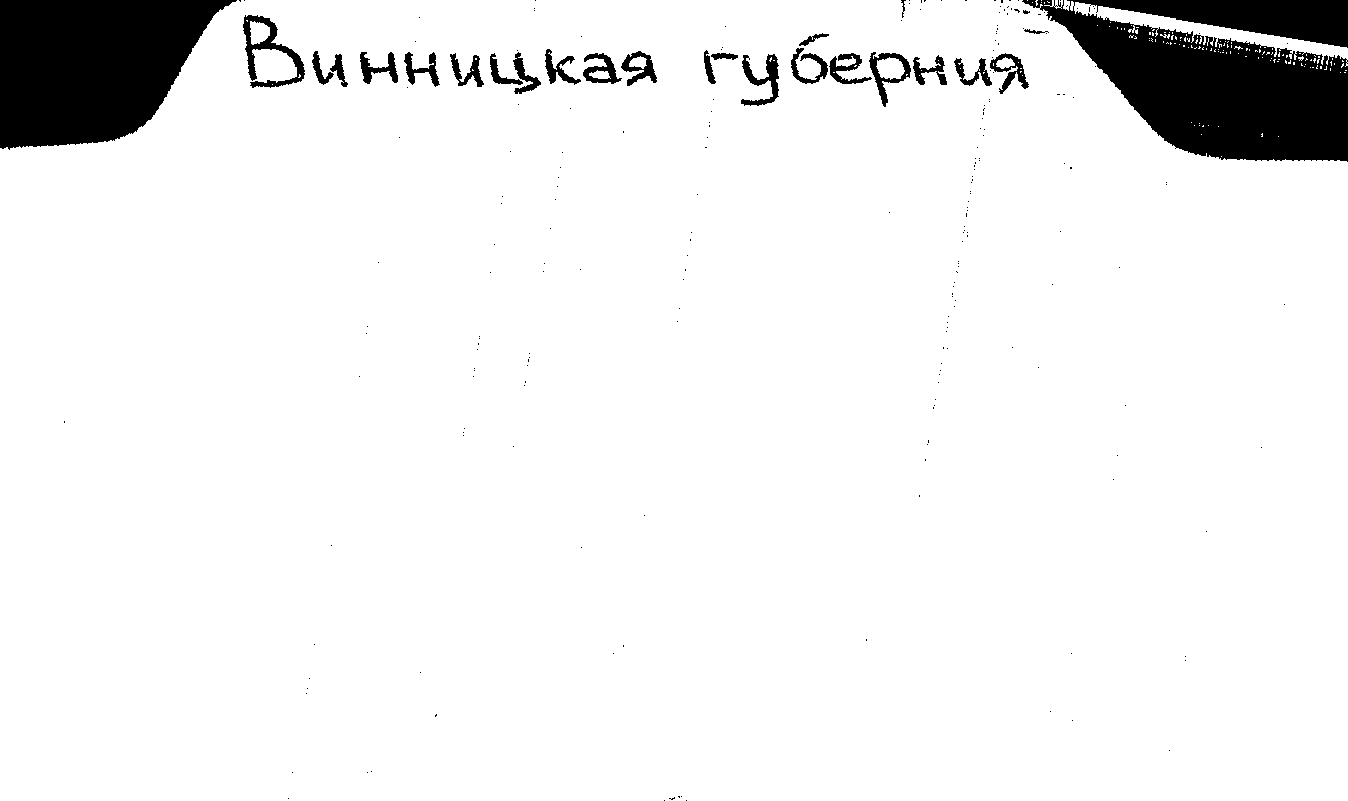 Винницкая губерния